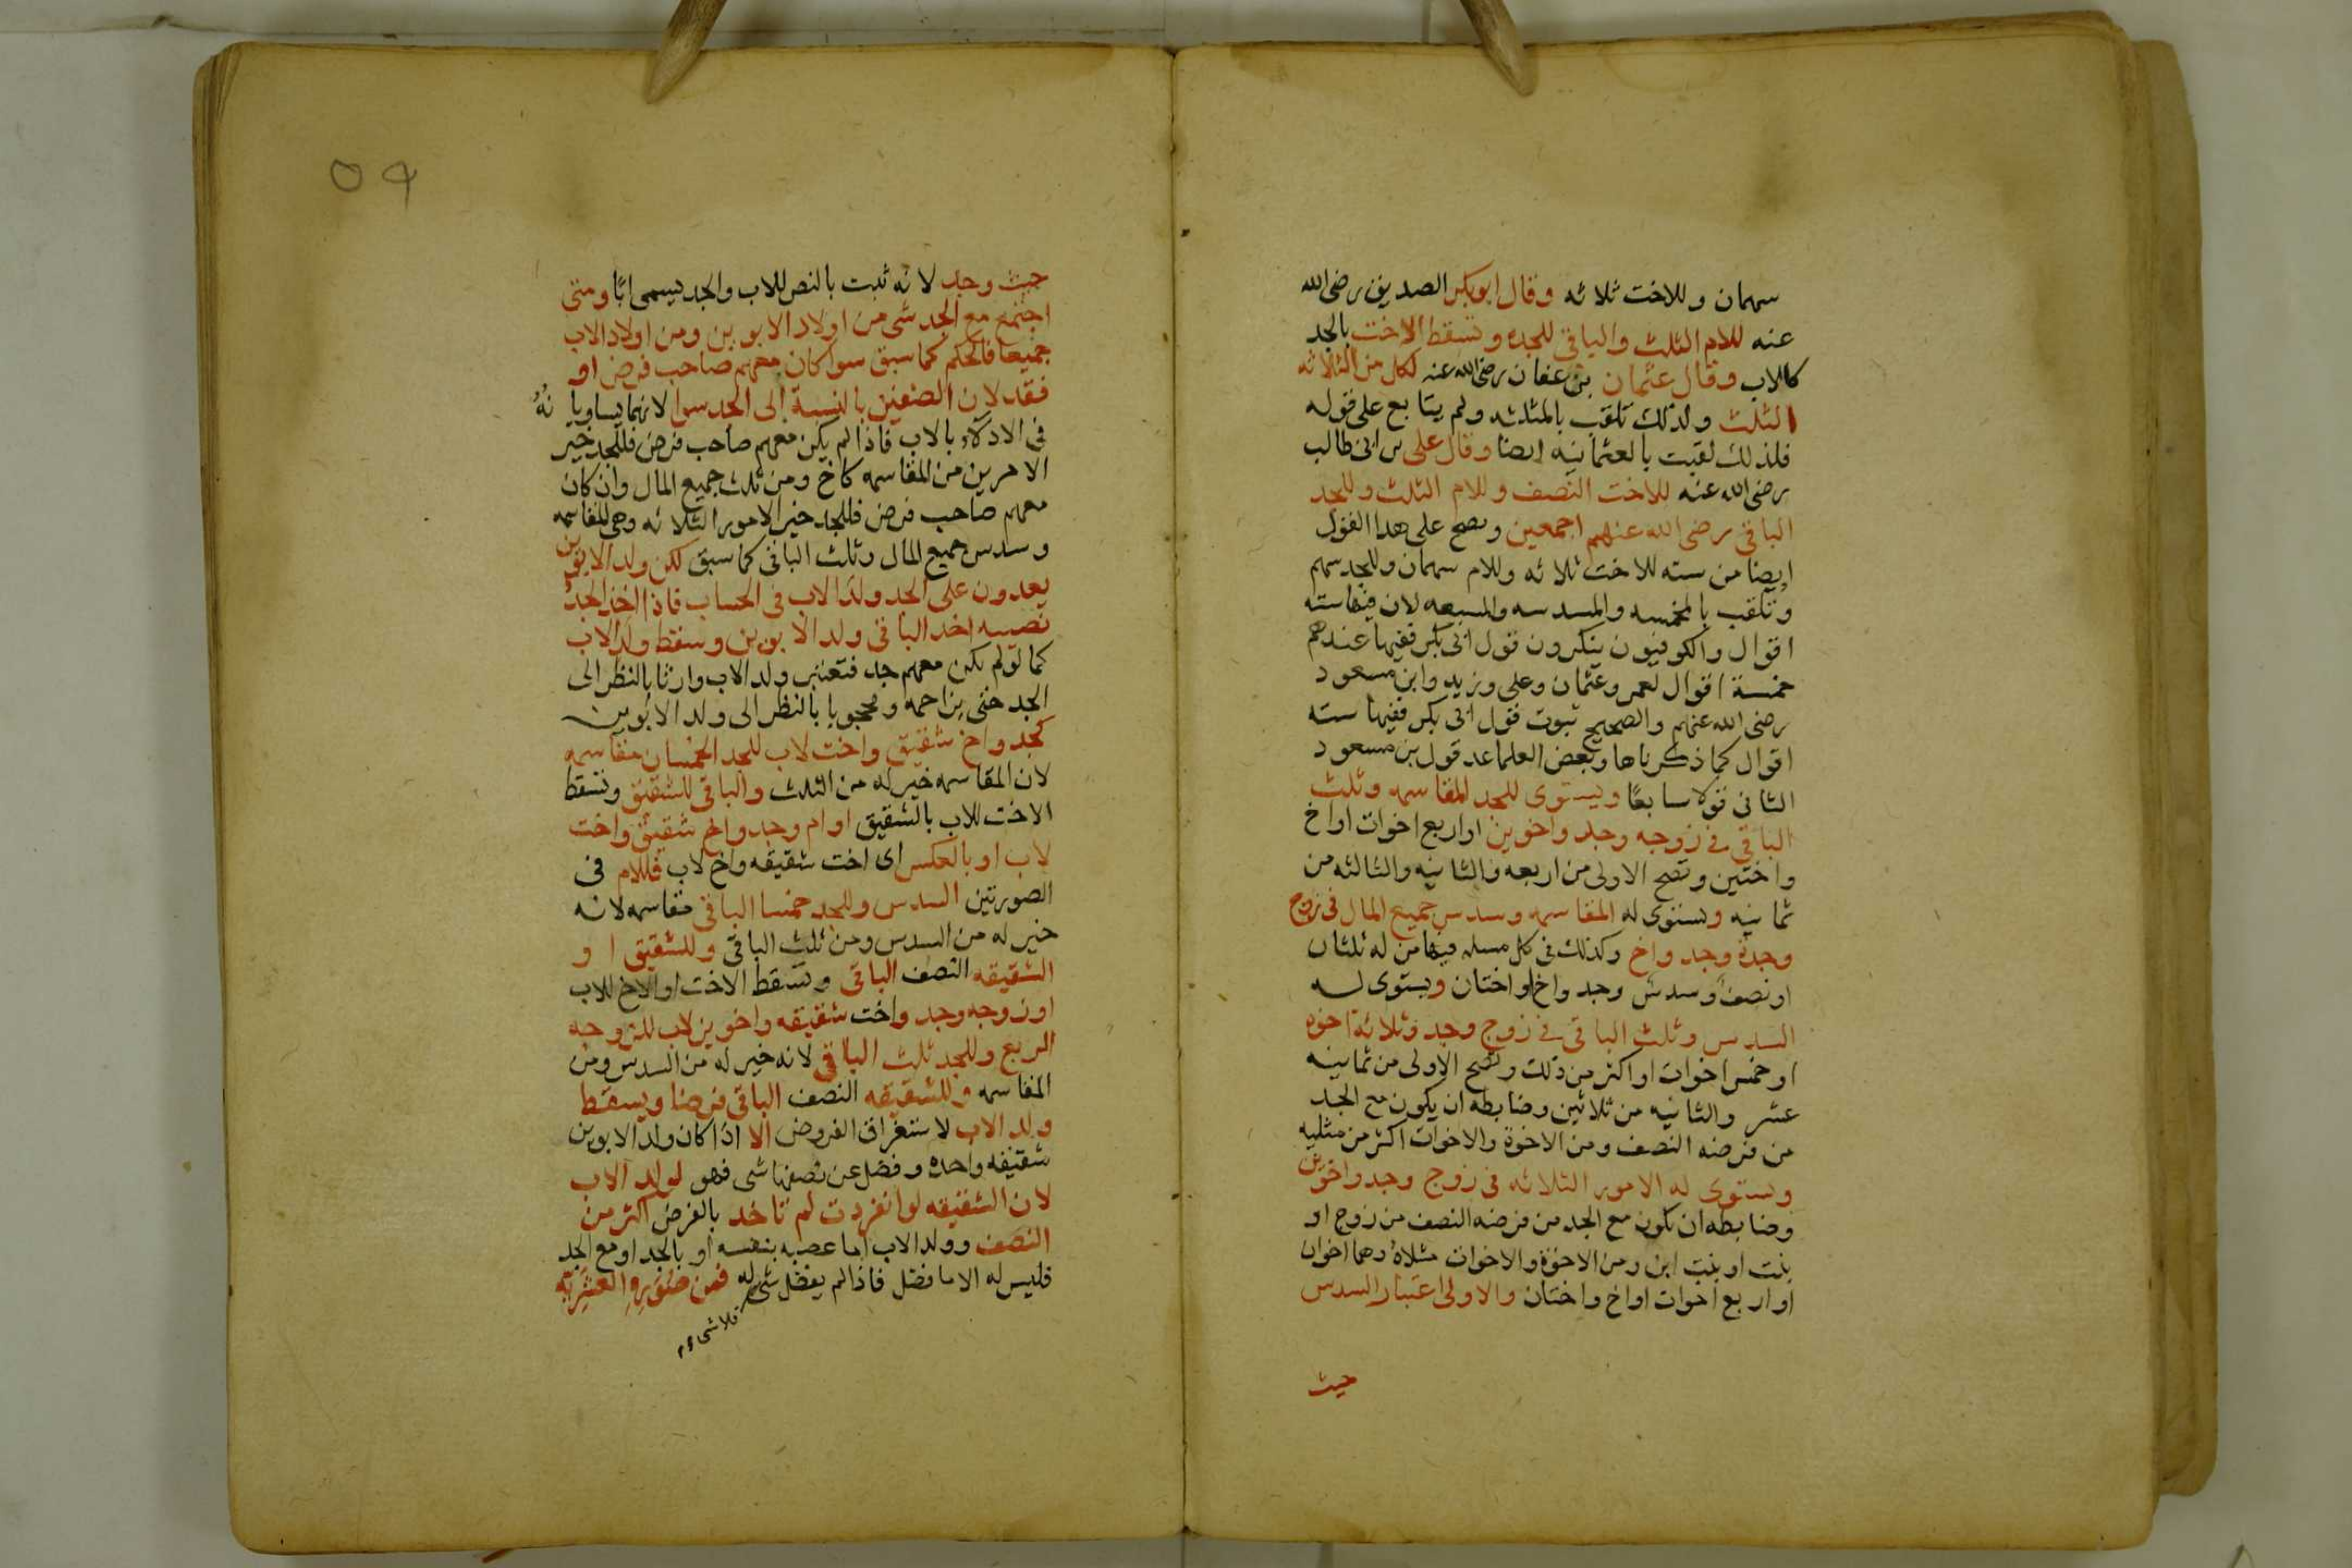 سهمان وللاخت ثلاثه وقال ابو بكر الصديق رضى الله
عنه للام الثلث والباقى للجده وتسقط الاخت بالجد
كالاب وقال عثمان بن عفان رضى الله عنه لكل من الثلاثه
الثلث ولذلك تلقب بالمثلثه ولم يتابع على قوله
فلذلك لقبت بالعثمانيه ايضا وقال على بن ابى طالب
رضى الله عنه للاخت النصف وللام الثلث وللجد
الباقى رضى الله عنهم اجمعين وتصح على هذا القول
ايضا من سته للاخت ثلاثه وللام سهمان وللجد سهم
وتلقب بالمخمسه والمسدسه والمسبعه لان فيها سته
اقوال والكوفيون ينكرون قول ابى بكر ففيها عندهم
خمسة اقوال لعمر وعثمان وعلى وزيد وابن مسعود
رضى الله عنهم والصحيح ثبوت قول ابى بكر ففيها سته
اقوال كما ذكرناها وبعض العلما عد قول بن مسعود
الثانى قولا سابعًا ويستوى للجد المقاسمه وثلث
الباقى فى زوجه وجد واخوين او اربع اخوات او اخ
واختين وتصح الاولى من اربعه والثانيه والثالثه من
ثمانيه ويستوى له المقاسمه وسدس جميع المال فى زوج
وجدة وجد واخ وكذلك فى كل مسله فيها من له ثلثان
او نصف وسدس وجد واخ او اختان ويستوى لـه
السدس وثلث الباقى فى زوج وجد وثلاثة اخوه
او خمس اخوات او اكثر من ذلك وتصح الاولى من ثمانيه
عشر والثانيه من ثلاثين وضابطه ان يكون مع الجد
من فرضه النصف ومن الاخوة والاخوات اكثر من مثليه
ويستوى له الامور الثلاثه فى زوج وجد واخوين
وضابطه ان تكون مع الجد من فرضه النصف من زوج او
بنت او بنت ابن ومن الاخوة والاخوات مثلاه وهما اخوان
او اربع اخوات او اخ واختان والاولى اعتبار السدس
حيث
٥٩
حيث وجد لانه ثبت بالنص للاب والجد يسمى ابًا ومتى
اجتمع مع الجد شى من اولاد الابوين ومن اولاد الاب
جميعا فالحكم كما سبق سوا كان معهم صاحب فرض او
فقد لان الصنفين بالنسبة الى الجد سوا لانهما يساويانه
فى الادلاء بالاب فاذا لم يكن معهم صاحب فرض فللجد خير
الامرين من المقاسمه كاخ ومن ثلث جميع المال وان كان
معهم صاحب فرض فللجد خير الامور الثلاثه وهى المقاسمه
وسدس جميع المال وثلث الباقى كما سبق لكن ولد الابوين
يعدون على الجد ولد الاب فى الحساب فاذا اخذ الجد
نصيبه اخد الباقى ولد الابوين وسقط ولد الاب
كما لو لم يكن معهم جد فتعتبر ولد الاب وارثا بالنظر الى
الجد حتى يزاحمه ومحجوبا بالنظر الى ولد الابوين
كجد واخ شقيق واخت لاب للجد الخمسان مقاسمه
لان المقاسمه خير له من الثلث والباقى للشقيق وتسقط
الاخت للاب بالشقيق او ام وجد واخ شقيق واخت
لاب او بالعكس اى اخت شقيقه واخ لاب فللام فى
الصورتين السدس وللجد خمسا الباقى مقاسمه لانه
خير له من السدس ومن ثلث الباقى وللشقيق او
الشقيقه النصف الباقى وتسقط الاخت او الاخ للاب
او زوجه وجد واخت شقيقه واخوين لاب للزوجه
الربع وللجد ثلث الباقى لانه خير له من السدس ومن
المقاسمه وللشقيقه النصف الباقى فرضا ويسقط
ولد الاب لاستغراق الفروض الا اذا كان ولد الابوين
شقيقه واحده وفضل عن نصفها شى فهو لولد الاب
لان الشقيقه لو انفردت لم تاخد بالفرض اكثر من
النصف وولد الاب اما عصبه بنفسه او بالجد او مع الجد
فليس له الا ما فضل فاذا لم يفضل شى له فمن صوره العشرية
فلا شىء